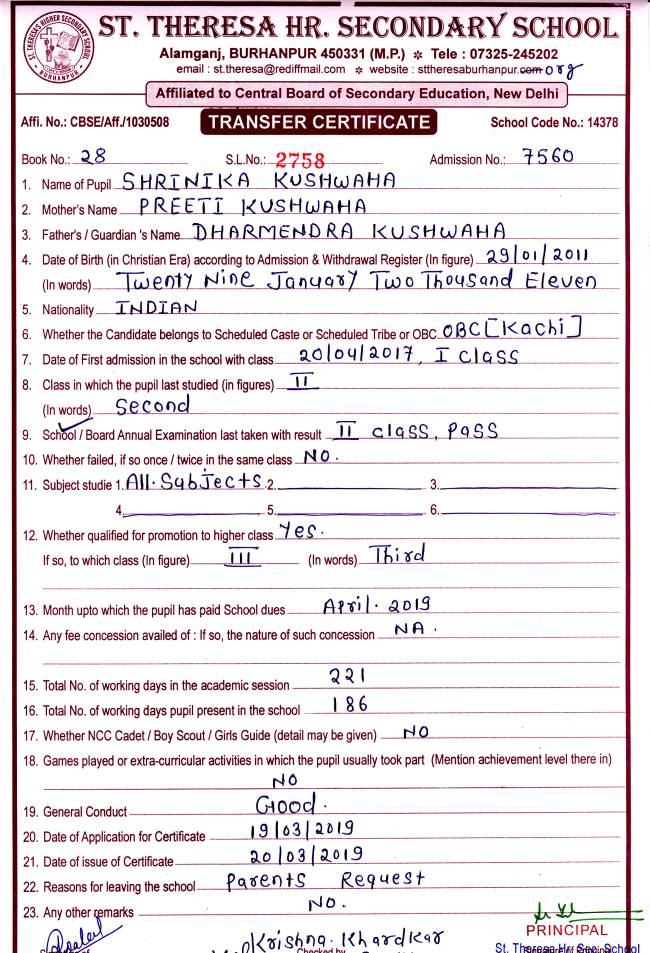 ST. THERESA HR. SECONDARY SCHOOL
Alamganj, BURHANPUR 450331 (M.P.) ✲ Tele : 07325-245202
email : st.theresa@rediffmail.com ✲ website : sttheresaburhanpur.com org
Affiliated to Central Board of Secondary Education, New Delhi
Affi. No.: CBSE/Aff./1030508 TRANSFER CERTIFICATE School Code No.: 14378
Book No.: 28 S.L.No.: 2758 Admission No.: 7560
1. Name of Pupil SHRINIKA KUSHWAHA
2. Mother's Name PREETI KUSHWAHA
3. Father's / Guardian 's Name DHARMENDRA KUSHWAHA
4. Date of Birth (in Christian Era) according to Admission & Withdrawal Register (In figure) 29/01/2011
(In words) Twenty Nine January Two Thousand Eleven
5. Nationality INDIAN
6. Whether the Candidate belongs to Scheduled Caste or Scheduled Tribe or OBC OBC [Kachi]
7. Date of First admission in the school with class 20/04/2017, I class
8. Class in which the pupil last studied (in figures) II
(In words) Second
9. School / Board Annual Examination last taken with result II class, Pass
10. Whether failed, if so once / twice in the same class NO.
11. Subject studie 1. All. Subjects 2. 3.
4. 5. 6.
12. Whether qualified for promotion to higher class Yes.
If so, to which class (In figure) III (In words) Third
13. Month upto which the pupil has paid School dues April. 2019
14. Any fee concession availed of : If so, the nature of such concession NA.
15. Total No. of working days in the academic session 221
16. Total No. of working days pupil present in the school 186
17. Whether NCC Cadet / Boy Scout / Girls Guide (detail may be given) NO
18. Games played or extra-curricular activities in which the pupil usually took part (Mention achievement level there in)
NO
19. General Conduct Good.
20. Date of Application for Certificate 19/03/2019
21. Date of issue of Certificate 20/03/2019
22. Reasons for leaving the school Parents Request
23. Any other remarks NO.
PRINCIPAL
Krishna. Khardkar
St. Theresa Hr. Sec. School
Checked by